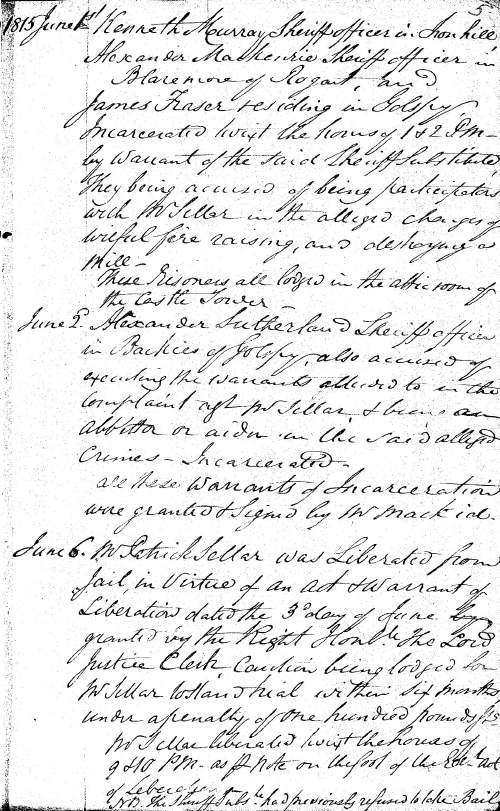 5
1815 June 1st Kenneth Murray Sheriff officer in Ironhill
Alexander MacKenzie Sheriff officer in
Blaremore of Rogart, and
James Fraser residing in Golspy,
Incarcerated twixt the hours of 1 & 2 P.M -
by Warrant of the said Sheriff Substitute,
They being accused of being participators
with Mr Sellar in the alleged charges of
wilful fire raising, and destroying a
Mill -
These Prisoners all lodged in the attic room of
the Castle Tower -
June 2. Alexander Sutherland Sheriff officer
in Backies of Golspy, also accused of
executing the warrants alluded to in the
Complaint agt Mr Sellar, & being an
abbettor or aider in the said alleged
Crimes - Incarcerated -
all these Warrants of Incarceration
were granted & signed by Mr Mackid.
June 6. Mr Patrick Sellar was Liberated from
Jail, in Virtue of an Act & Warrant of
Liberation dated the 3d day of June
granted by the Right Honble The Lord
Justice Clerk, Caution being lodged for
Mr Sellar to stand trial within Six Months
under a penalty of One hundred pounds
Mr Sellar liberated twixt the hours of
9 & 10 P.M - as p note on the foot of the act
of Liberation
NB. The Sheriff Subste had previously refused to take Bail